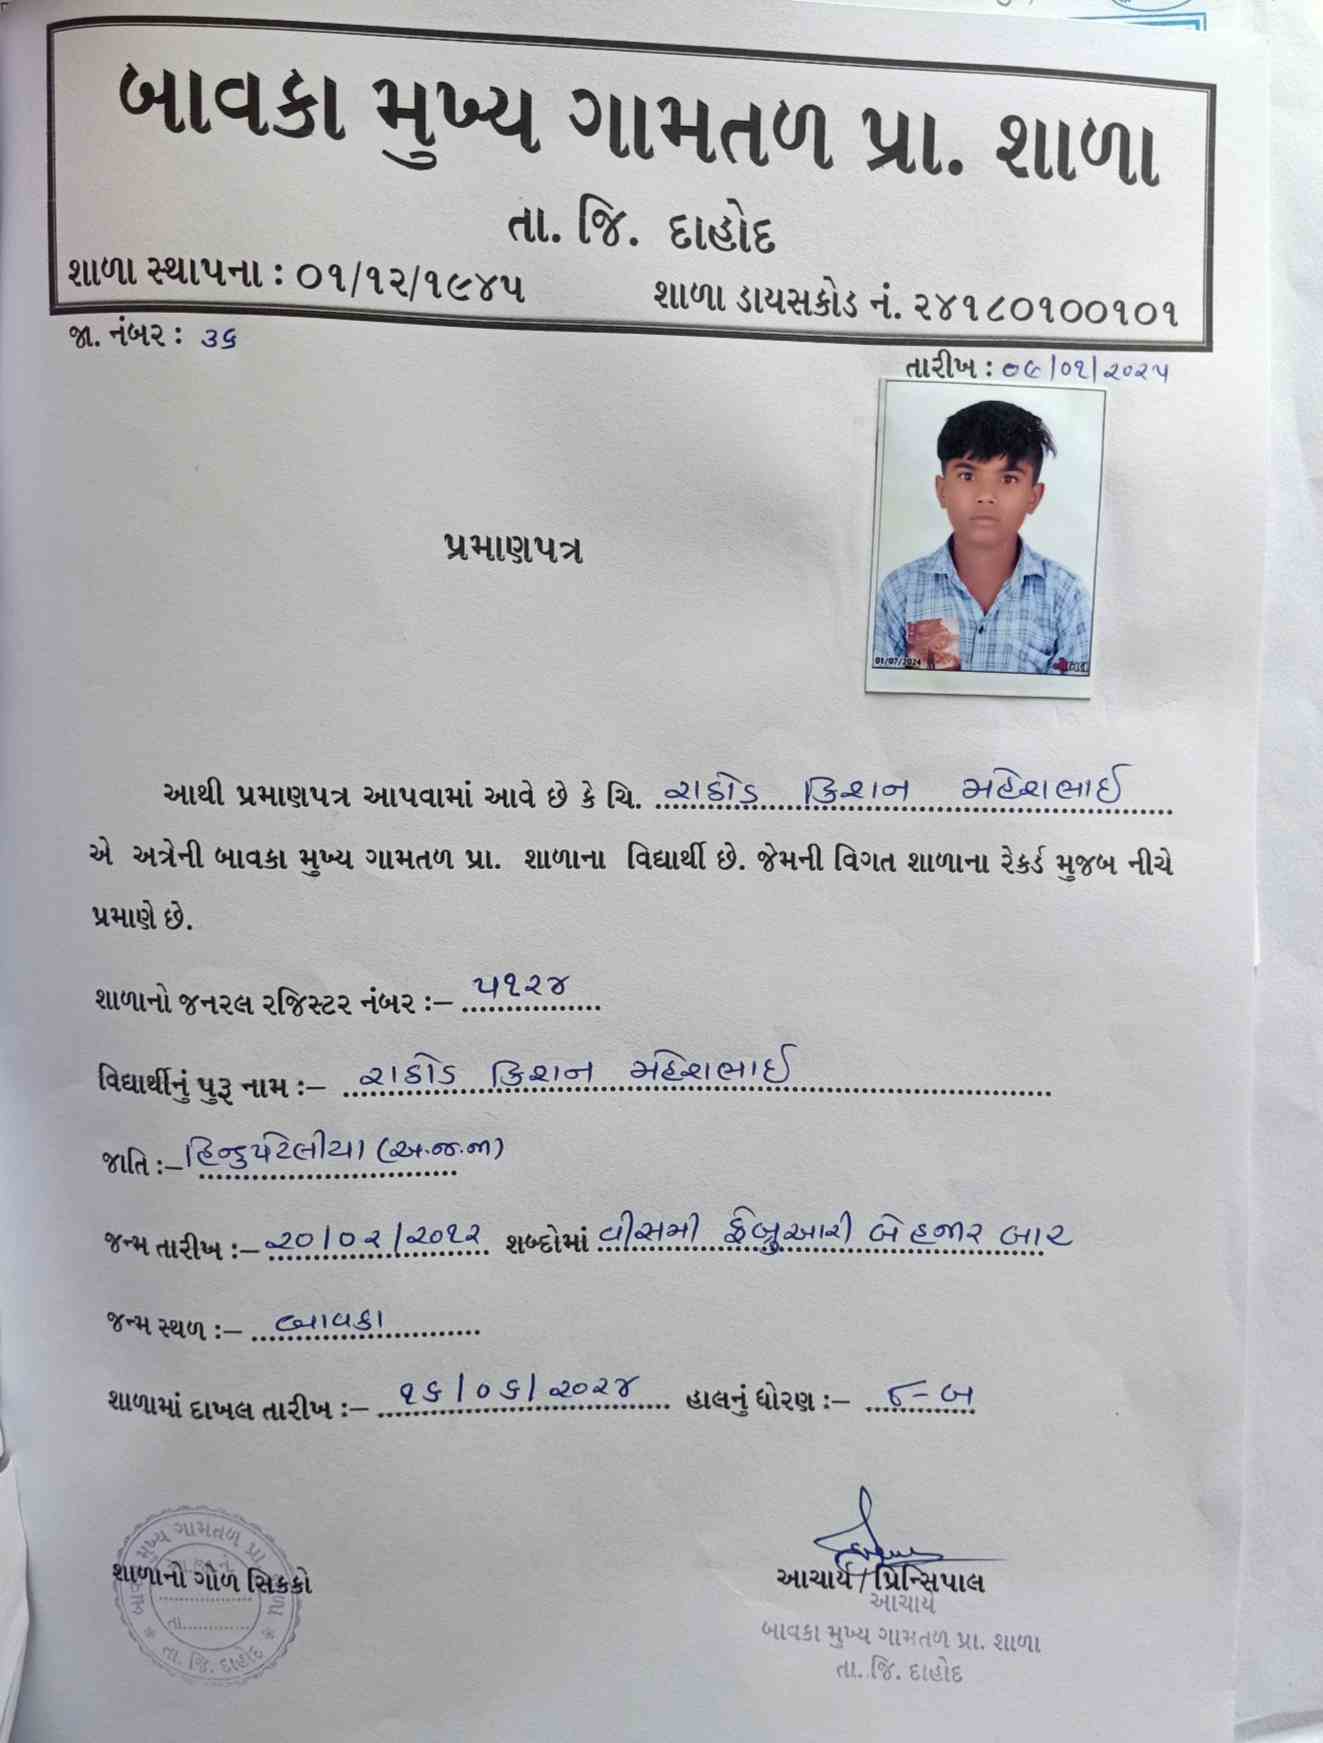 બાવકા મુખ્ય ગામતળ પ્રા. શાળા
તા. જિ. દાહોદ
શાળા સ્થાપના : ૦૧/૧૨/૧૯૪૫ શાળા ડાયસકોડ નં. ૨૪૧૮૦૧૦૦૧૦૧
જા. નંબર : ૩૬
તારીખ : ૦૯/૦૧/૨૦૨૫
01/07/2024
પ્રમાણપત્ર
આથી પ્રમાણપત્ર આપવામાં આવે છે કે ચિ. રાઠોડ કિશન મહેશભાઈ
એ અત્રેની બાવકા મુખ્ય ગામતળ પ્રા. શાળાના વિદ્યાર્થી છે. જેમની વિગત શાળાના રેકર્ડ મુજબ નીચે
પ્રમાણે છે.
શાળાનો જનરલ રજિસ્ટર નંબર :– ૫૧૨૪
વિદ્યાર્થીનું પુરૂ નામ :– રાઠોડ કિશન મહેશભાઈ
જાતિ :– હિન્દુ પટેલીયા (અ.જ.જા)
જન્મ તારીખ :– ૨૦/૦૨/૨૦૧૨ શબ્દોમાં વીસમી ફેબ્રુઆરી બે હજાર બાર
જન્મ સ્થળ :– બાવકા
શાળામાં દાખલ તારીખ :– ૧૬/૦૬/૨૦૨૪ હાલનું ધોરણ :– ૮-બ
બાવકા મુખ્ય ગામતળ પ્રા. શાળા
શાળાનો ગોળ સિકકો
તા.
તા. જિ. દાહોદ
આચાર્ય / પ્રિન્સિપાલ
આચાર્ય
બાવકા મુખ્ય ગામતળ પ્રા. શાળા
તા. જિ. દાહોદ